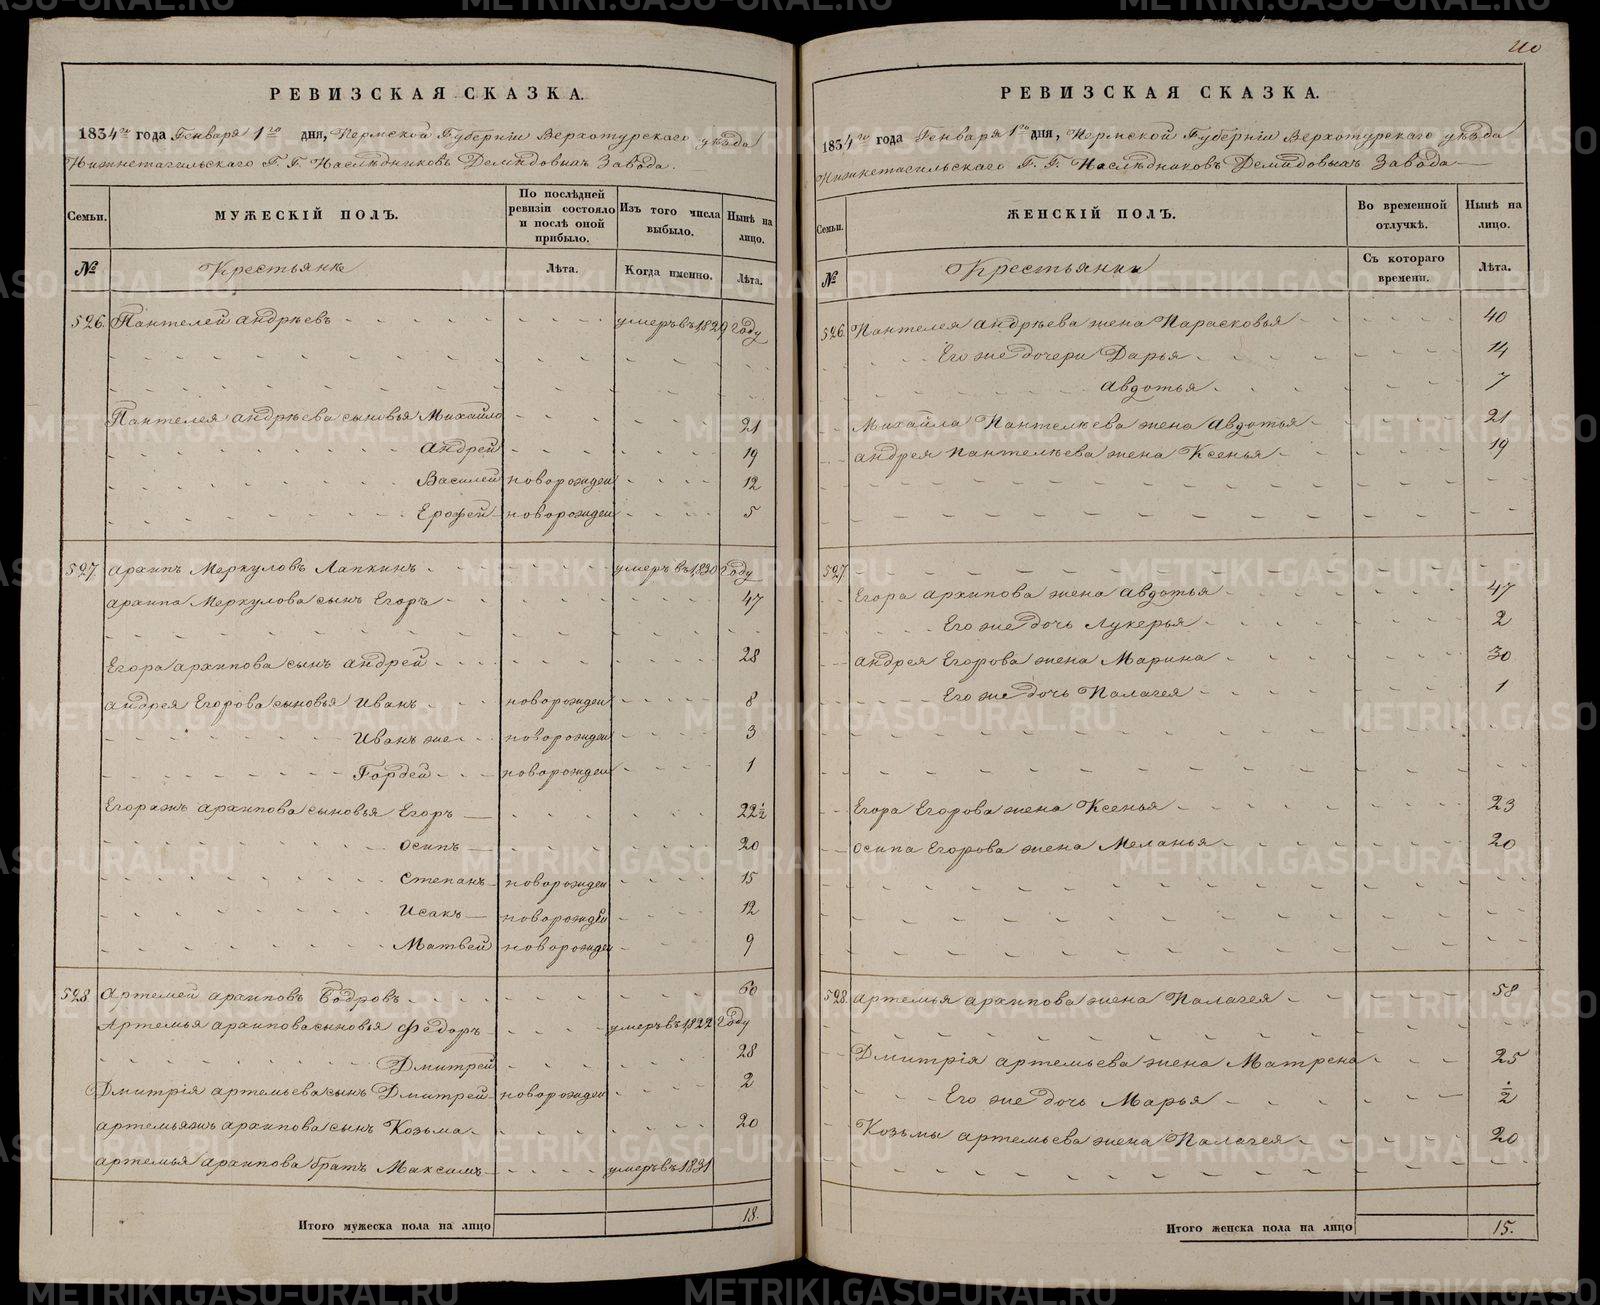 РЕВИЗСКАЯ СКАЗКА.
1834 го года Генваря 1 го дня, Пермской Губерніи Верхотурскаго уѣзда
Нижнетагильскаго Г. Г. Наслѣдниковъ Демидовыхъ Завода.
Семьи. МУЖЕСКІЙ ПОЛЪ. По послѣдней ревизіи состояло и послѣ оной прибыло. Изъ того числа выбыло. Нынѣ на лицо.
№ Крестьяне Лѣта. Когда именно. Лѣта.
526. Пантелей Андрѣевъ умеръ въ 1829 Году
Пантелея Андрѣева сыновья Михайло 21
Андрей 19
Василей новорожден 12
Ерофей новорожден 5
527. Архипъ Меркуловъ Лапкинъ умеръ въ 1830 Году
Архипа Меркулова сынъ Егоръ 47
Егора Архипова сынъ Андрей 28
Андрея Егорова сыновья Иванъ новорожден 8
Иванъ же новорожден 3
Гордей новорожден 1
Егора жъ Архипова сыновья Егоръ 22 1/2
Осипъ 20
Степанъ новорожден 15
Исакъ новорожден 12
Матвей новорожден 9
528 Артемей Архиповъ Бодровъ 60
Артемья Архипова сыновья Федоръ умеръ въ 1822 Году
Дмитрей 28
Дмитрія Артемьева сынъ Дмитрей новорожден 2
Артемья жъ Архипова сынъ Козьма 20
Артемья Архипова братъ Максимъ умеръ въ 1831
Итого мужеска пола на лицо 18.
РЕВИЗСКАЯ СКАЗКА.
1834 го года Генваря 1 го дня, Пермской Губерніи Верхотурскаго уѣзда
Нижнетагильскаго Г. Г. Наслѣдниковъ Демидовыхъ Завода
Семьи. ЖЕНСКІЙ ПОЛЪ. Во временной отлучкѣ. Нынѣ на лицо.
№ Крестьянки Съ котораго времени. Лѣта.
526. Пантелея Андрѣева жена Парасковья 40
Его же дочери Дарья 14
Авдотья 7
Михайла Пантелѣева жена Авдотья 21
Андрея Пантелѣева жена Ксенья 19
527.
Егора Архипова жена Авдотья 47
Его же дочь Лукерья 2
Андрея Егорова жена Марина 30
Его же дочь Палагея 1
Егора Егорова жена Ксенья 23
Осипа Егорова жена Меланья 20
528. Артемья Архипова жена Палагея 58
Дмитрія Артемьева жена Матрена 25
Его же дочь Марья 1/2
Козьмы Артемьева жена Палагея 20
Итого женска пола на лицо 15.
METRIKI.GASO-URAL.RU